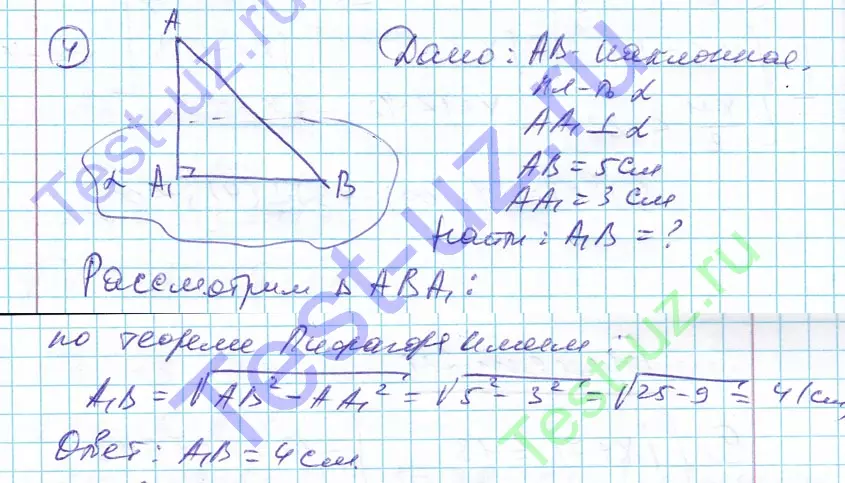 4
A
Дано: AB - наклонная,
пл-ть α
AA₁ ⊥ α
AB = 5 см
AA₁ = 3 см
Найти: A₁B = ?
α A₁ B
Рассмотрим Δ ABA₁:
по теореме Пифагора имеем:
A₁B = √AB² - AA₁² = √5² - 3² = √25 - 9 = 4 (см)
Ответ: A₁B = 4 см.
Test-uz.ru
Test-uz.ru
Test-uz.ru